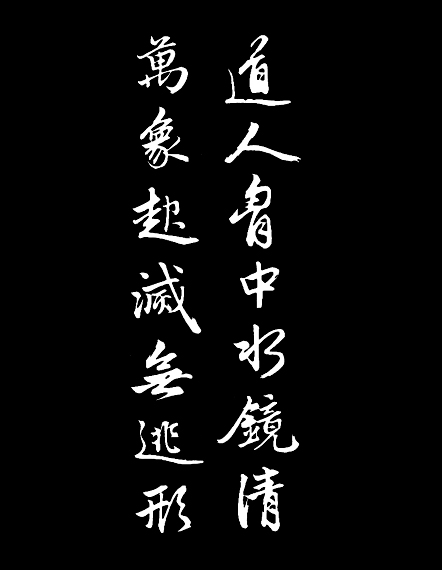 道人胷中水鏡清
萬象起滅無逃形